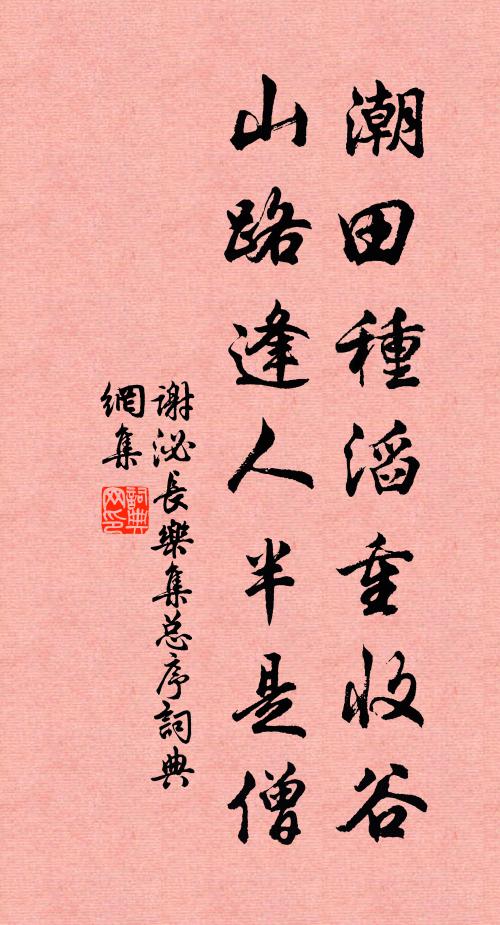 潮田種滔重收谷
山路逢人半是僧
謝泌長樂集总序詞典
網集
詞典
网印